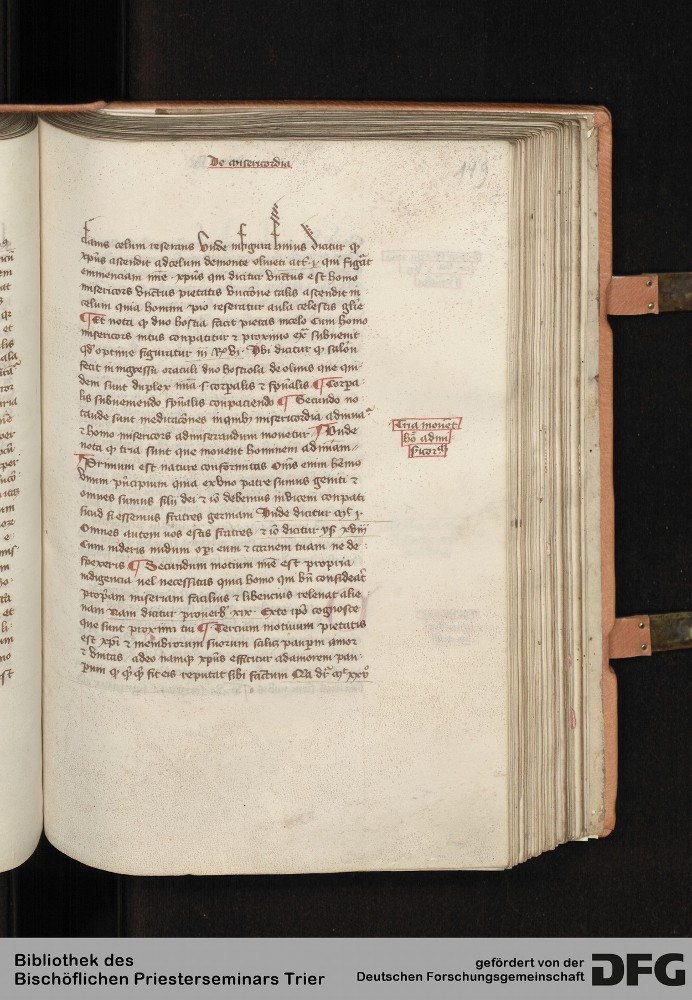 De misericordia
149
tanis celum reserans Unde dicitur q
xpus ascendit ad celum de monte oliueti
emmenciam xpus qui dicitur vnctus est homo
misericors vnctus pietatis vnccione talis ascendit in
celum quia homini pio reseratur aula celestis glie
¶ Et nota q duo hostia facit pietas in celo Cum homo
misericors intus compatitur et proximo ex subuenit
qd optime figuratur iii dicitur q salon
fecit in ingressu oraculi duo hostiola de oliuis que qui
dem sunt duplex s corpalis et spualis ¶ Corpa
lis subueniendo spualis conpaciendo ¶ Secundo no
tande sunt meditacones in quibus misericordia
et homo misericors ad miserandum mouetur ¶ Vnde
nota q tria sunt que mouent hominem ad
¶ Primum est nature conformitas Oms enim
vnum pncipium quia ex vno patre sumus geniti et
omnes sumus filii dei et io debemus inuicem conpati
sicud si essemus fratres germani Vnde dicitur
Omnes autem vos estis fratres et io dicitur ys
Cum uideris nudum opi eum et carnem tuam ne de
spexeris ¶ Secundum motium est propria
indigencia uel necessitas quia homo qui bn
propam miseriam facilius et libencius releuat alie
nam Nam dicitur prouerb xix Exte ipo cognosce
que sunt proximi tui ¶ Tercium motiuum pietatis
est xpi et membrorum suorum paupm amor
et adeo namq xpus efficitur ad amorem pau
rum q fit eis reputat sibi factum
Tria mouet
ho ad mi
sicor
Bibliothek des
Bischöflichen Priesterseminars Trier
gefördert von der
Deutschen Forschungsgemeinschaft
DFG